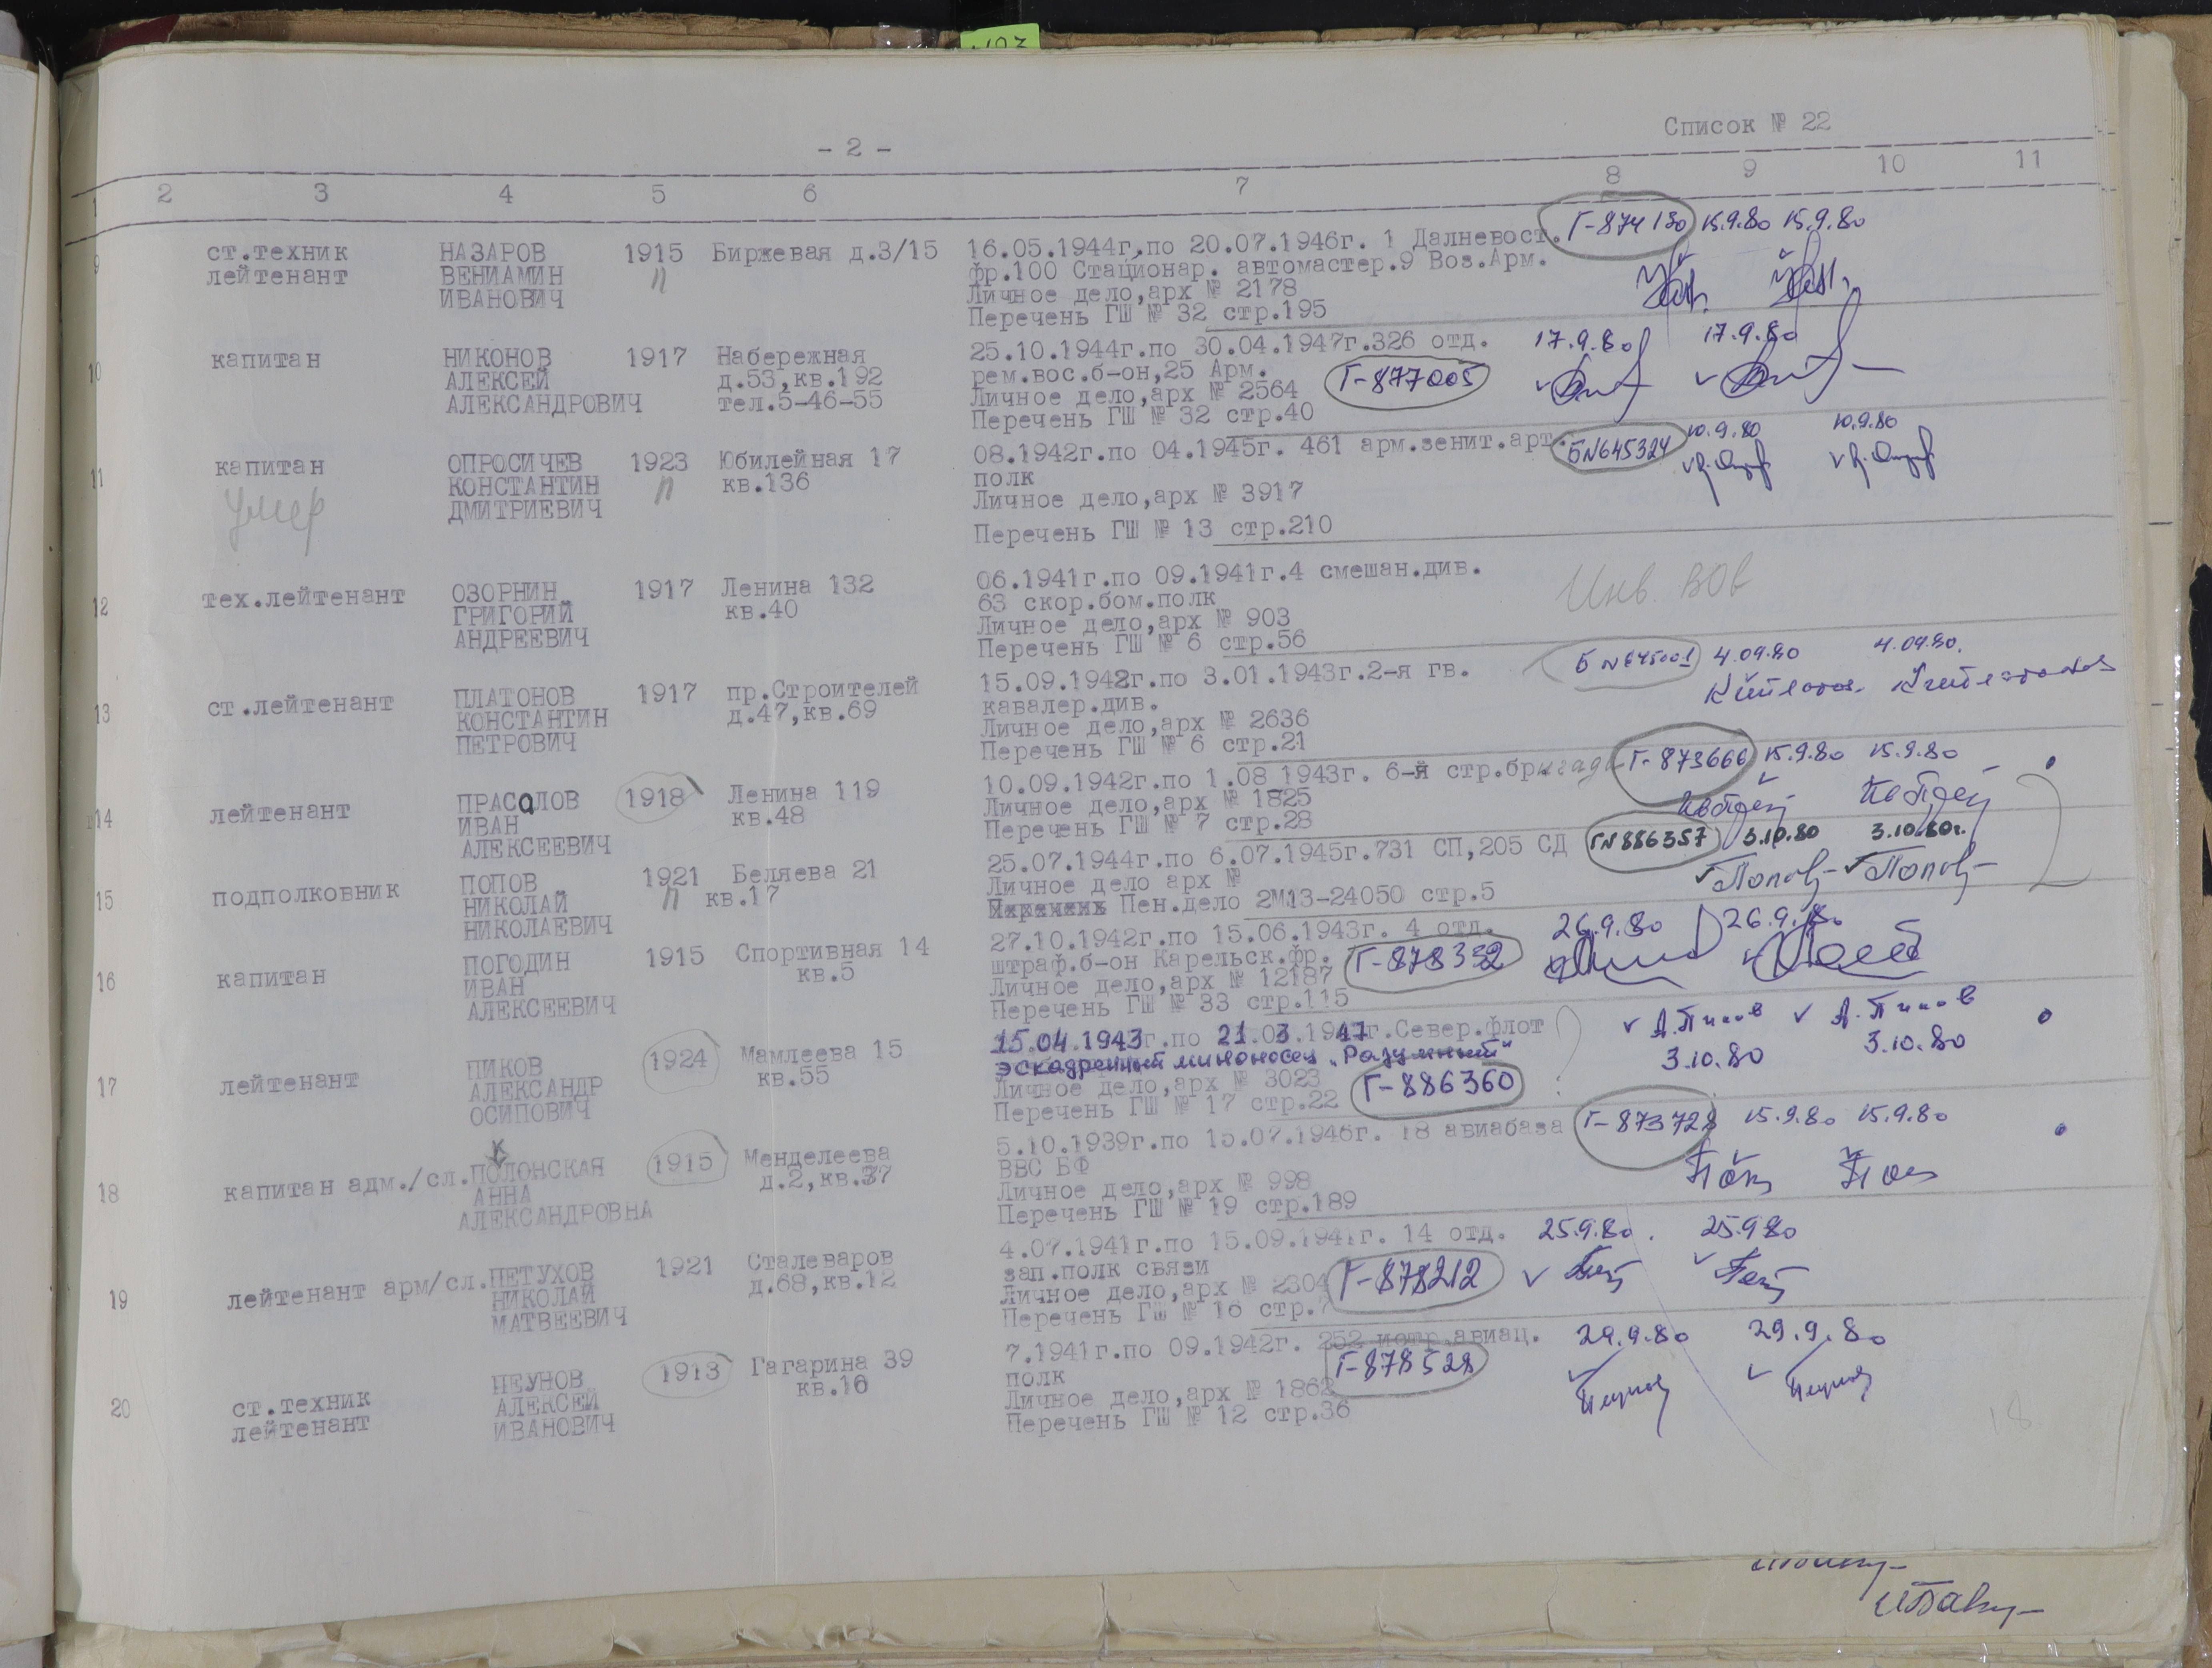 Список № 22
- 2 -
1 2 3 4 5 6 7 8 9 10 11
9 ст.техник НАЗАРОВ 1915 Биржевая д.3/15 16.05.1944г.по 20.07.1946г. 1 Далневост. Г-874130 15.9.80 15.9.80
лейтенант ВЕНИАМИН п фр.100 Стационар. автомастер.9 Воз.Арм.
ИВАНОВИЧ Личное дело,арх № 2178
Перечень ГШ № 32 стр.195
10 капитан НИКОНОВ 1917 Набережная 25.10.1944г.по 30.04.1947г.326 отд. 17.9.80 17.9.80
АЛЕКСЕЙ д.53,кв.192 рем.вос.б-он,25 Арм. Г-877005
АЛЕКСАНДРОВИЧ тел.5-46-55 Личное дело,арх № 2564
Перечень ГШ № 32 стр.40
11 капитан ОПРОСИЧЕВ 1923 Юбилейная 17 08.1942г.по 04.1945г. 461 арм.зенит.арт. БN645324 10.9.80 10.9.80
умер КОНСТАНТИН п кв.136 полк
ДМИТРИЕВИЧ Личное дело,арх № 3917
Перечень ГШ № 13 стр.210
12 тех.лейтенант ОЗОРНИН 1917 Ленина 132 06.1941г.по 09.1941г.4 смешан.див. Инв. ВОв
ГРИГОРИЙ кв.40 63 скор.бом.полк
АНДРЕЕВИЧ Личное дело,арх № 903
Перечень ГШ № 6 стр.56
13 ст.лейтенант ПЛАТОНОВ 1917 пр.Строителей 15.09.1942г.по 3.01.1943г.2-я гв. Б N 645001 4.09.80 4.09.80.
КОНСТАНТИН д.47,кв.69 кавалер.див.
ПЕТРОВИЧ Личное дело,арх № 2636
Перечень ГШ № 6 стр.21
14 лейтенант ПРАСОЛОВ 1918 Ленина 119 10.09.1942г.по 1.08 1943г. 6-я стр.бригада Г-873666 15.9.80 15.9.80
ИВАН кв.48 Личное дело,арх № 1825
АЛЕКСЕЕВИЧ Перечень ГШ № 7 стр.28
15 подполковник ПОПОВ 1921 Беляева 21 25.07.1944г.по 6.07.1945г.731 СП,205 СД ГN886357 3.10.80 3.10.80г.
НИКОЛАЙ п кв.17 Личное дело арх № Попов Попов
НИКОЛАЕВИЧ Перечень Пен.дело 2М13-24050 стр.5
16 капитан ПОГОДИН 1915 Спортивная 14 27.10.1942г.по 15.06.1943г. 4 отд. 26.9.80 26.9.80
ИВАН кв.5 штраф.б-он Карельск.фр. Г-878332
АЛЕКСЕЕВИЧ Личное дело,арх № 12187
Перечень ГШ № 33 стр.115
17 лейтенант ПИКОВ 1924 Мамлеева 15 15.04.1943г.по 21.03.1947г.Север.флот ? А.Пиков А.Пиков
АЛЕКСАНДР кв.55 эскадренный миноносец „Разумный" 3.10.80 3.10.80
ОСИПОВИЧ Личное дело,арх № 3023 Г-886360
Перечень ГШ № 17 стр.22
18 капитан адм./сл. ПОЛОНСКАЯ 1915 Менделеева 5.10.1939г.по 15.07.1946г. 18 авиабаза Г-873728 15.9.80 15.9.80
к
АННА д.2,кв.37 ВВС БФ
АЛЕКСАНДРОВНА Личное дело,арх № 998
Перечень ГШ № 19 стр.189
19 лейтенант арм/сл. ПЕТУХОВ 1921 Сталеваров 4.07.1941г.по 15.09.1941г. 14 отд. 25.9.80. 25.9.80
НИКОЛАЙ д.68,кв.12 зап.полк связи
МАТВЕЕВИЧ Личное дело,арх № 2304 Г-878212
Перечень ГШ № 16 стр.7
20 ст.техник ПЕУНОВ 1913 Гагарина 39 7.1941г.по 09.1942г. 252 истр.авиац. 29.9.80 29.9.80
лейтенант АЛЕКСЕЙ кв.16 полк Г-878528
ИВАНОВИЧ Личное дело,арх № 1862
Перечень ГШ № 12 стр.36
18